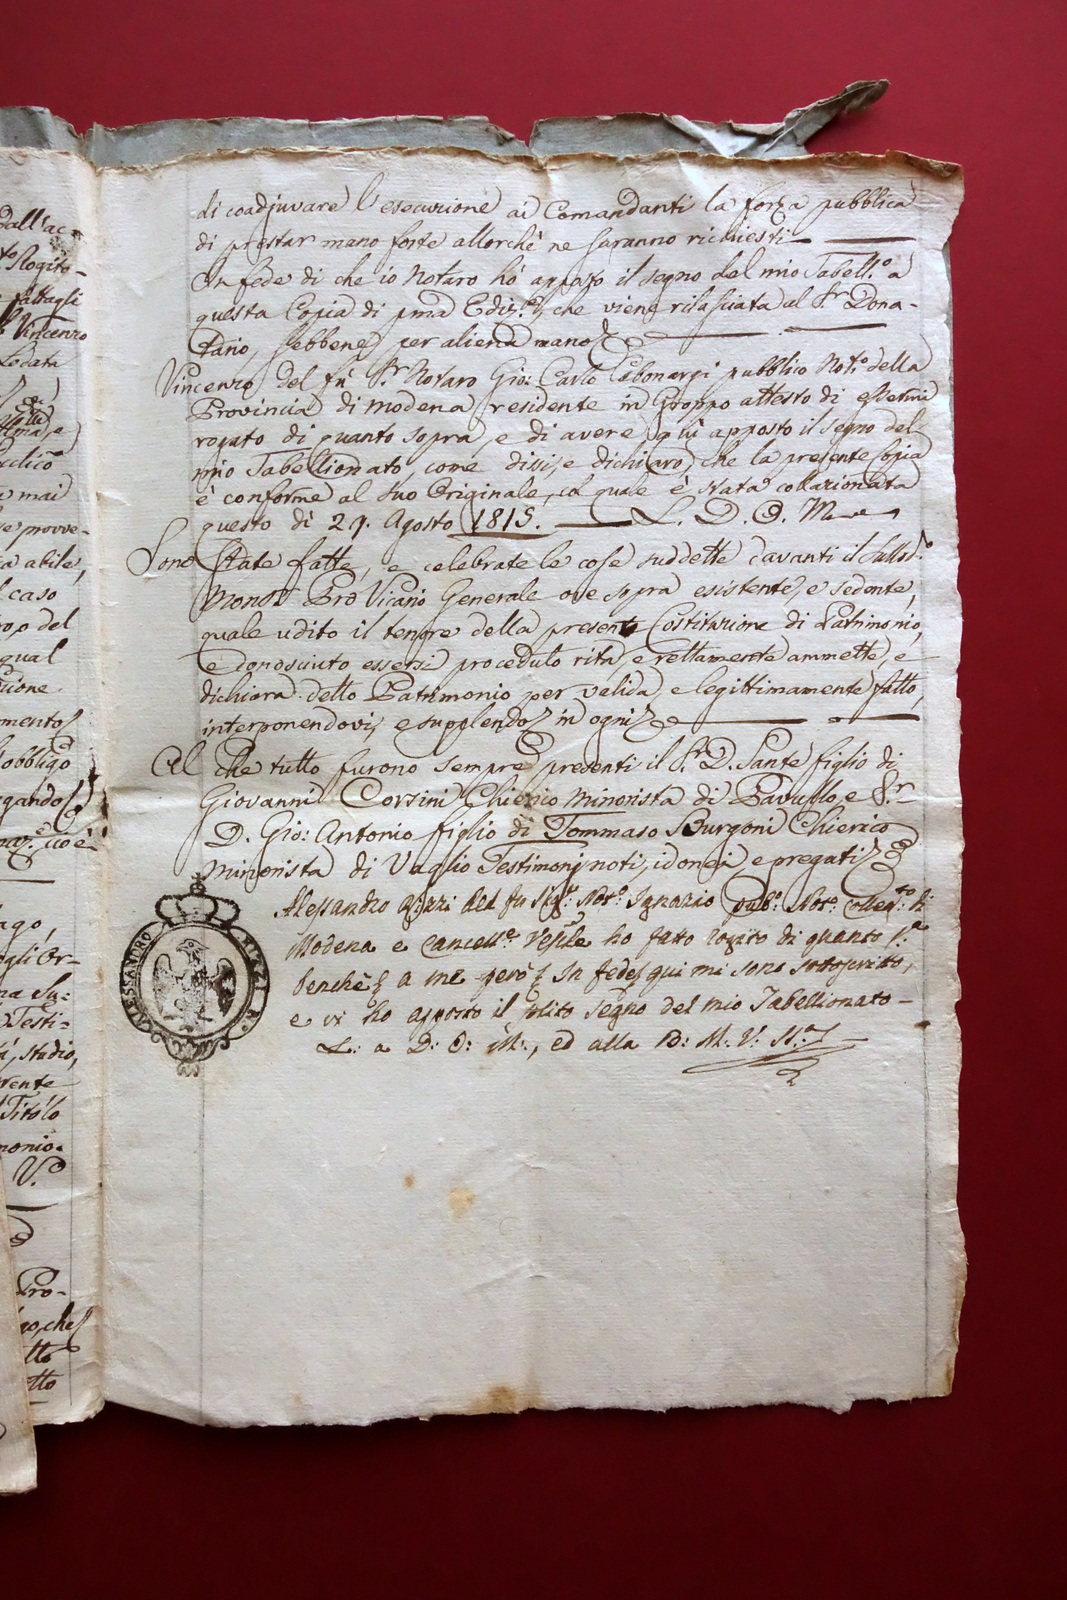 dall'ac=
to Rogito-
Vincenzo
Lodata
e mai
e provve-
a abile,
l caso
opo del
qual
zione
mento
obbligo
ago,
gli Or-
na Su=
Testi-
studio,
vente
Titolo
monio.
V.
Pro-
go, che
tto
etto
di coadjuvare l'esecuzione ai Comandanti la forza pubblica
di prestar mano forte allorchè ne saranno richiesti
In fede di che io Notaro hò apposto il segno del mio Tabell.o a
questa Copia di pma Ediz.e, che viene rilasciata al Sr. Dona-
tario, sebbene per aliena mano
Vincenzo del fù Sr. Notaro Gio: Carlo pubblico Not.o della
Provincia di Modena residente in Groppo attesto di essermi
rogato di quanto sopra, e di avere quì apposto il segno del
mio Tabellionato, come dissi, e dichiaro, che la presente Copia
è conforme al suo Originale, col quale è stata collazionata
questo dì 29. Agosto 1815. L. D. O. M.
Sono state fatte, e celebrate le cose suddette davanti il
Monsr. Pro Vicario Generale ove sopra esistente, e sedente,
quale udito il tenore della presente Costituzione di Patrimonio,
e conosciuto essersi proceduto rita, e rettamente ammette, e
dichiara detto Patrimonio per valida, e legittimamente fatto,
interponendovi, e supplendo in ogni
Al che tutto furono sempre presenti il Sr. D. Sante figlio di
Giovanni Corsini Chierico Minorista di Pavullo, e Sr.
D. Gio: Antonio figlio di Tommaso Burgoni Chierico
Minorista di Vaglio Testimonj noti, idonei, e pregati
Alessandro del fu Sigr. Not.o Ignazio pub.o Not.o di
Modena e Cancell.e ho fatto rogito di quanto s.a
benchè a me però In fede qui mi sono sottoscritto,
e vi ho apposto il solito segno del mio Tabellionato-
L: a D: O: M:, ed alla B: M: V: S.
ALESSANDRO